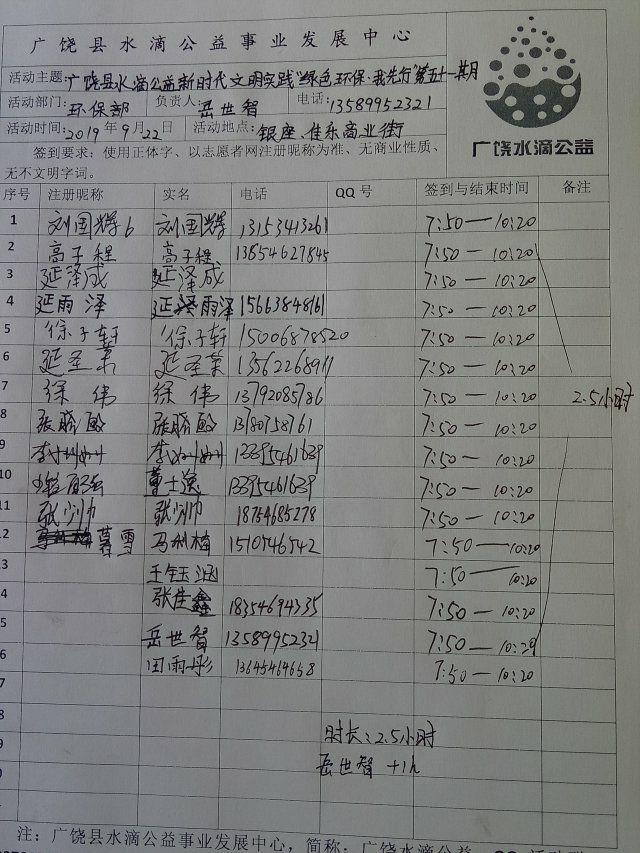 广饶县水滴公益事业发展中心
活动主题:广饶县水滴公益新时代文明实践“绿色环保·我先行”第五十一期月
活动部门:环保部 负责人:岳世智 电话:13589952321
活动时间:2019年9月22日 活动地点:银座、佳乐商业街
广饶水滴公益
签到要求:使用正体字、以志愿者网注册昵称为准、无商业性质、
无不文明字词。
序号 注册昵称 实名 电话 QQ号 签到与结束时间 备注
1 刘国辉6 刘国辉 13153413261 7:50—10:20
2 高子程 高子程 13854627845 7:50—10:20
3 延泽成 延泽成 7:50—10:20
4 延雨泽 延雨泽 15663848161 7:50—10:20
5 徐子轩 徐子轩 15006878520 7:50—10:20
6 延圣荣 延圣荣 13562268911 7:50—10:20
7 徐伟 徐伟 13792085786 7:50—10:20 2.5小时
8 张晓 张晓 13780758761 7:50—10:20
9 李 李 13395461639 7:50—10:20
10 曹士 13395461639 7:50—10:20
11 张帅 张帅 18754685278 7:50—10:20
12 暮雪 马利梅 1510546542 7:50—10:20
3 王钰涵 7:50—10:20
4 张佳鑫 18354694335 7:50—10:20
5 岳世智 13589952321 7:50—10:29
6 田雨彤 13645464658 7:50—10:20
7
8 时长:2.5小时
9 岳世智 +1h
0
注:广饶县水滴公益事业发展中心,简称:广饶水滴公益